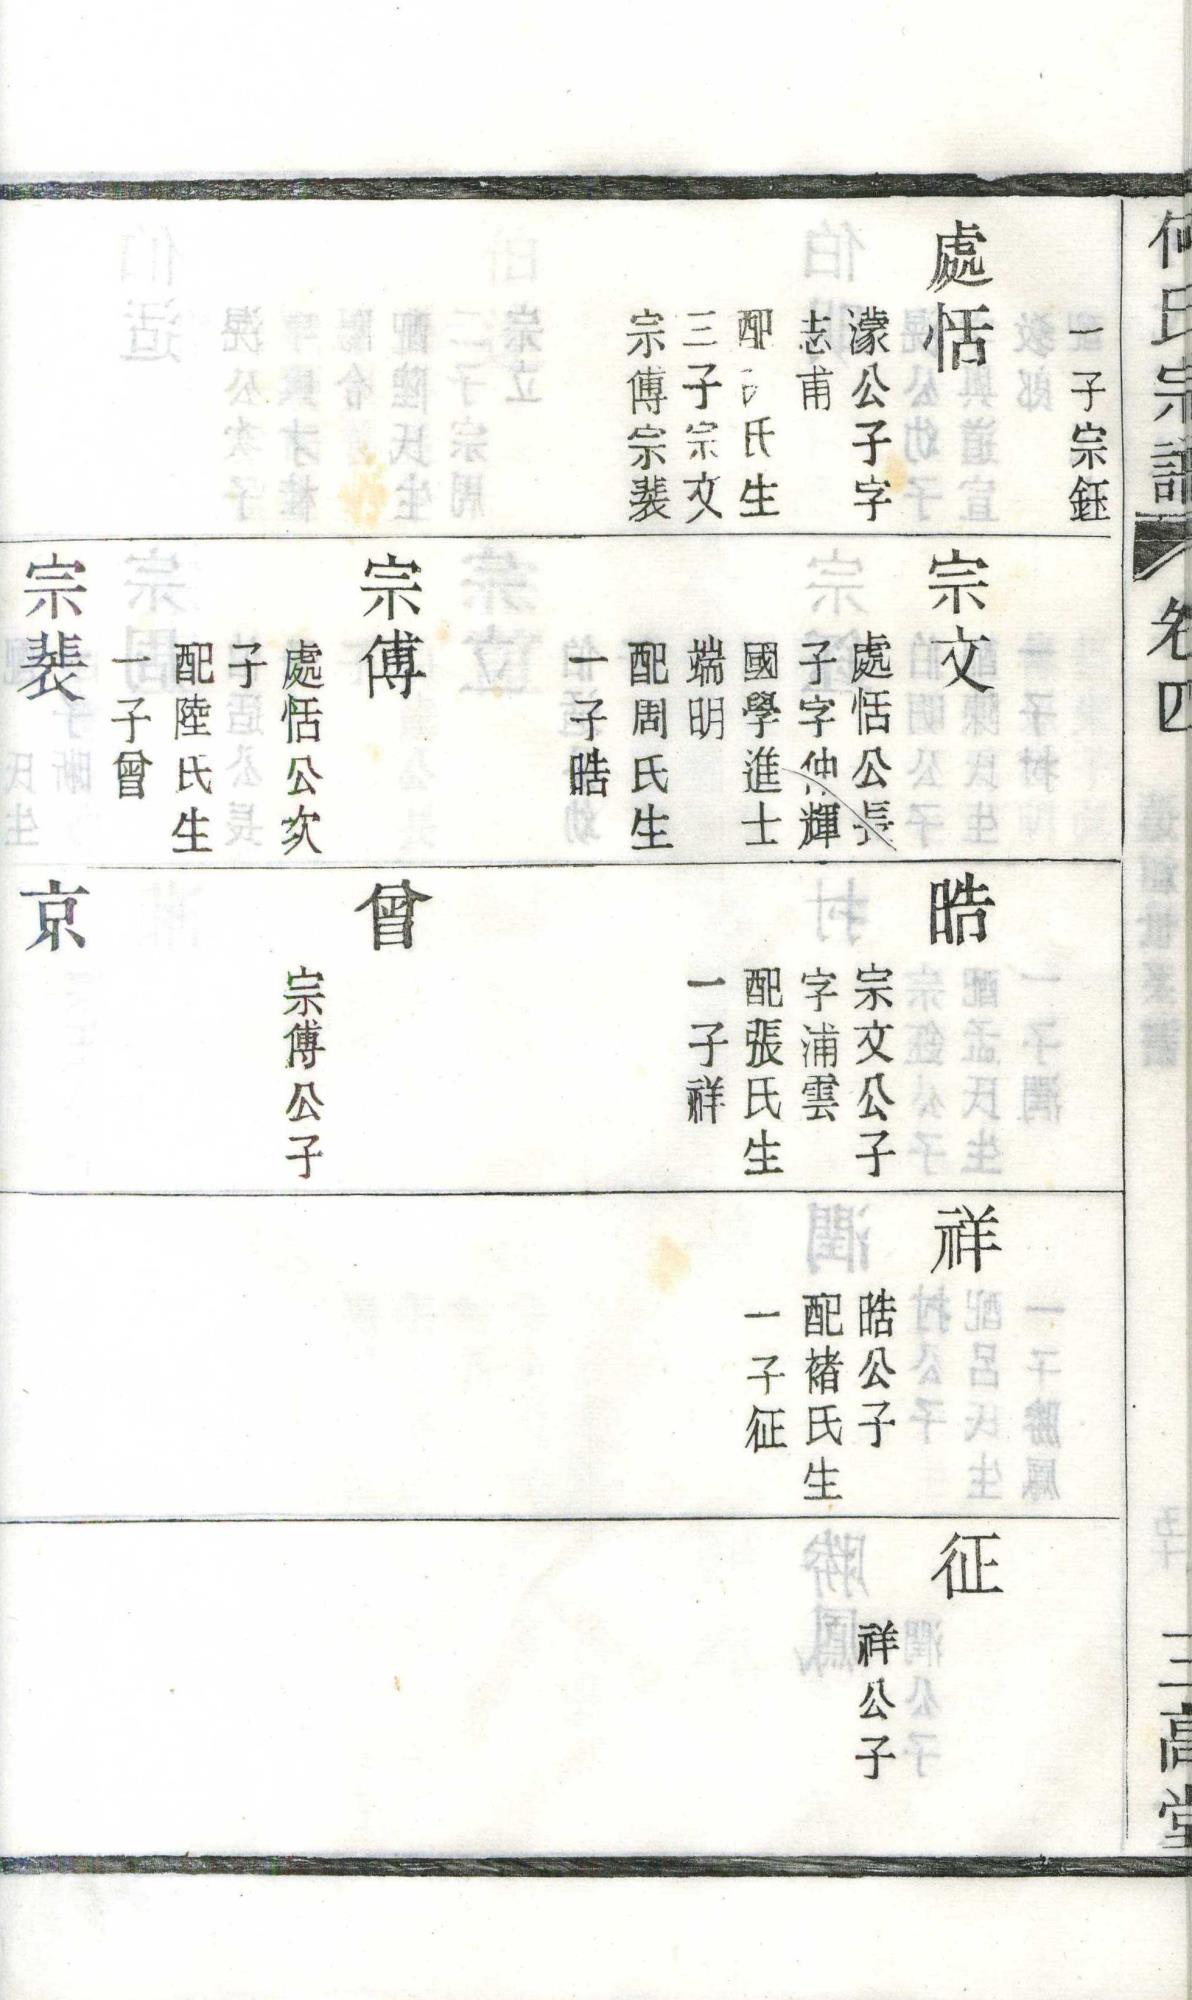 何氏宗譜
卷四
三高堂
一子宗鈺
處恬
濛公子字
志甫
配氏生
三子宗文
宗傅宗裴
宗文
處恬公長
子字仲輝
國學進士
端明
配周氏生
一子晧
宗傅
處恬公次
子
配陸氏生
一子曾
宗裴
晧
宗文公子
字浦雲
配張氏生
一子祥
曾
宗傅公子
京
祥
晧公子
配褚氏生
一子征
征
祥公子